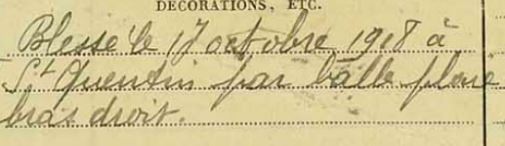 DÉCORATIONS, ETC.
Blessé le 17 octobre 1918 à
St Quentin par balle plaie
bras droit.